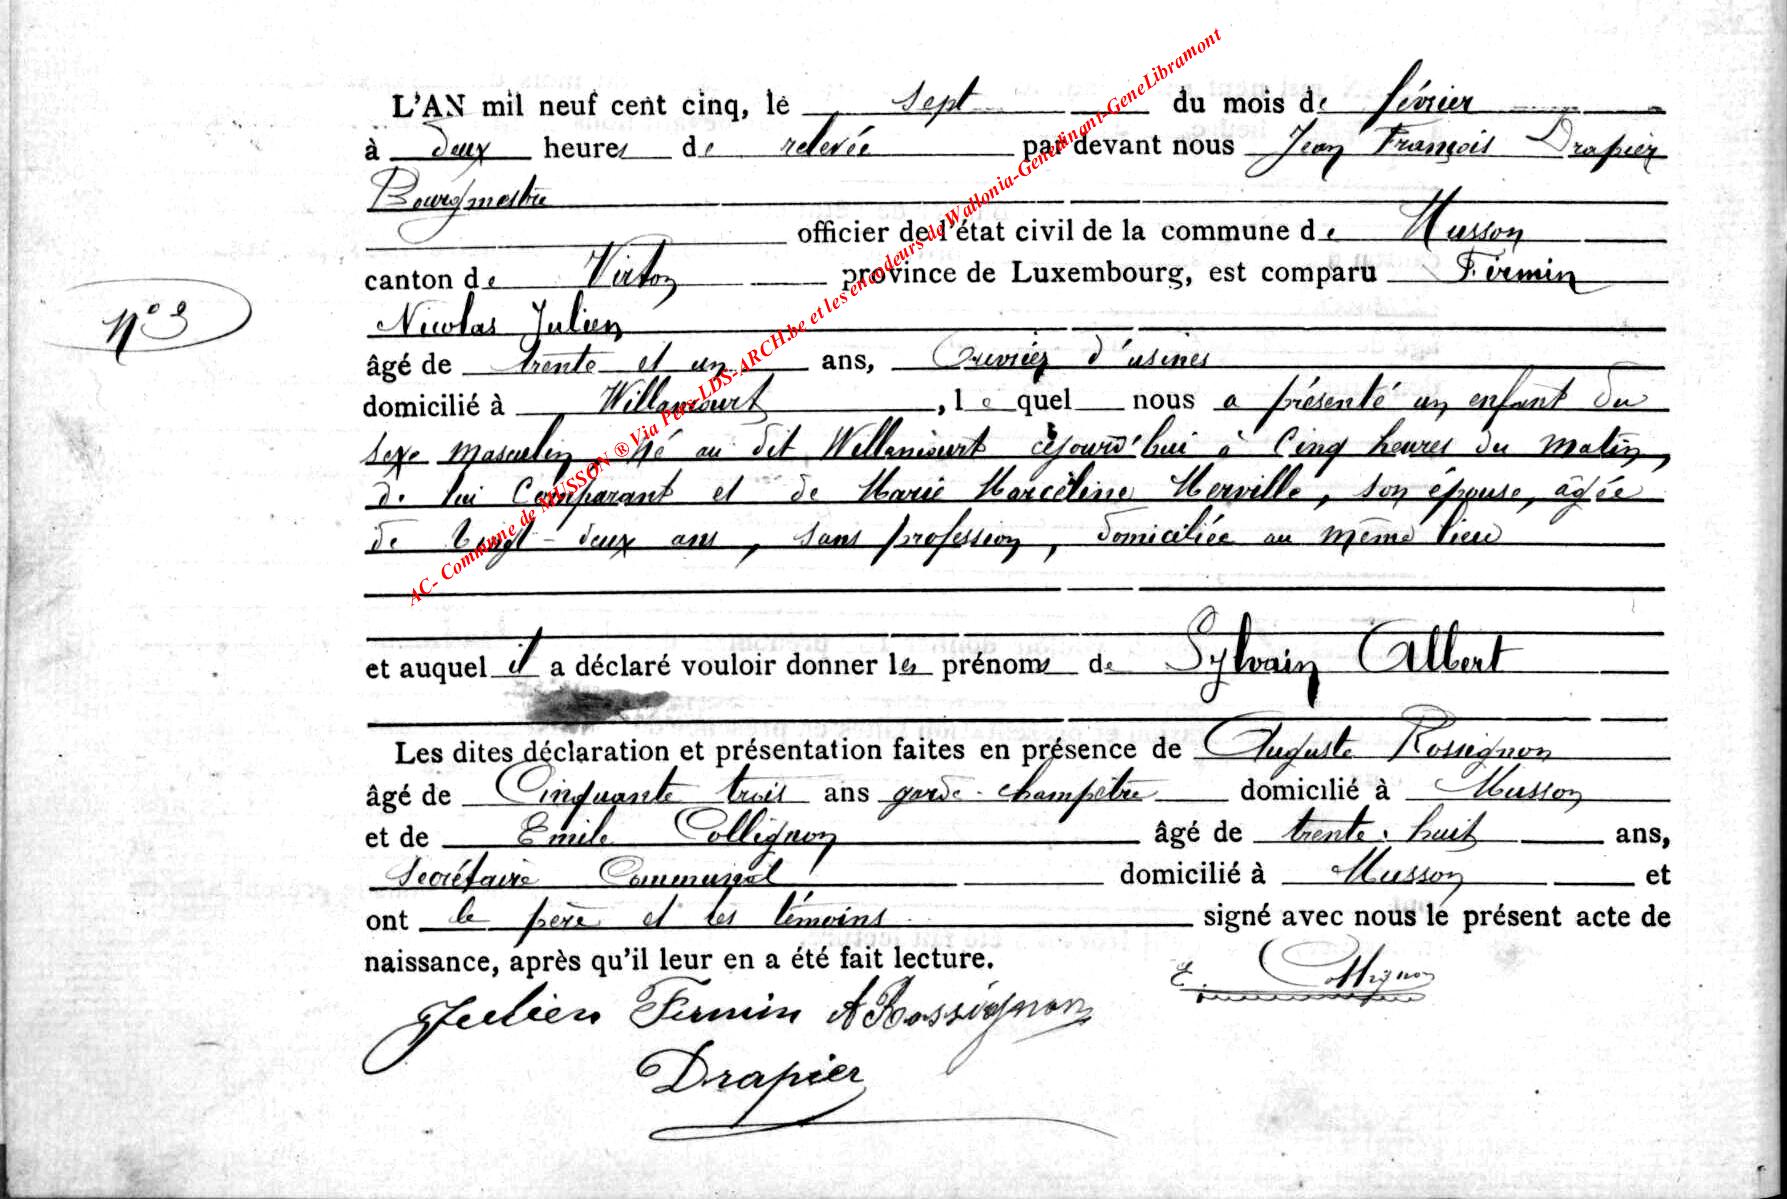 L'AN mil neuf cent cinq, le sept du mois de février
à deux heures de relevée par devant nous Jean François Drapier
Bourgmestre
officier de l'état civil de la commune de Musson
canton de Virton province de Luxembourg, est comparu Firmin
Nicolas Julien
N° 3
âgé de trente et un ans, Ouvrier d'usines
domicilié à Willancourt, le quel nous a présenté un enfant du
sexe masculin, né au dit Willancourt cejourd'hui à Cinq heures du matin,
de lui Comparant et de Marie Marceline Merville, son épouse, âgée
de vingt-deux ans, sans profession, domiciliée au même lieu
et auquel il a déclaré vouloir donner les prénoms de Sylvain Albert
Les dites déclaration et présentation faites en présence de Auguste Rossignon
âgé de Cinquante trois ans garde-champêtre domicilié à Musson
et de Emile Collignon âgé de trente-huit ans,
Secrétaire Communal domicilié à Musson et
ont le père et les témoins signé avec nous le présent acte de
naissance, après qu'il leur en a été fait lecture.
E. Collignon
Julien Firmin A Rossignon
Drapier
AC- Commune de MUSSON ® Via Pers-LDS-ARCH.be et les encodeurs de Wallonia-Genedinant-GeneLibramont